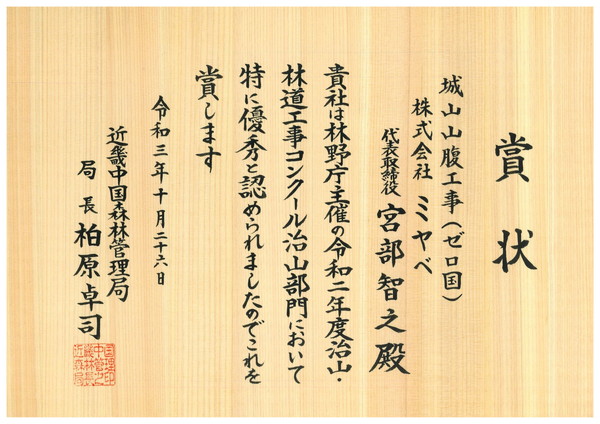 賞状
城山山腹工事(ゼロ国)
株式会社 ミヤベ
代表取締役 宮部智之殿
貴社は林野庁主催の令和二年度治山・
林道工事コンクール治山部門において
特に優秀と認められましたのでこれを
賞します
令和三年十月二十六日
近畿中国森林管理局
局長 柏原卓司